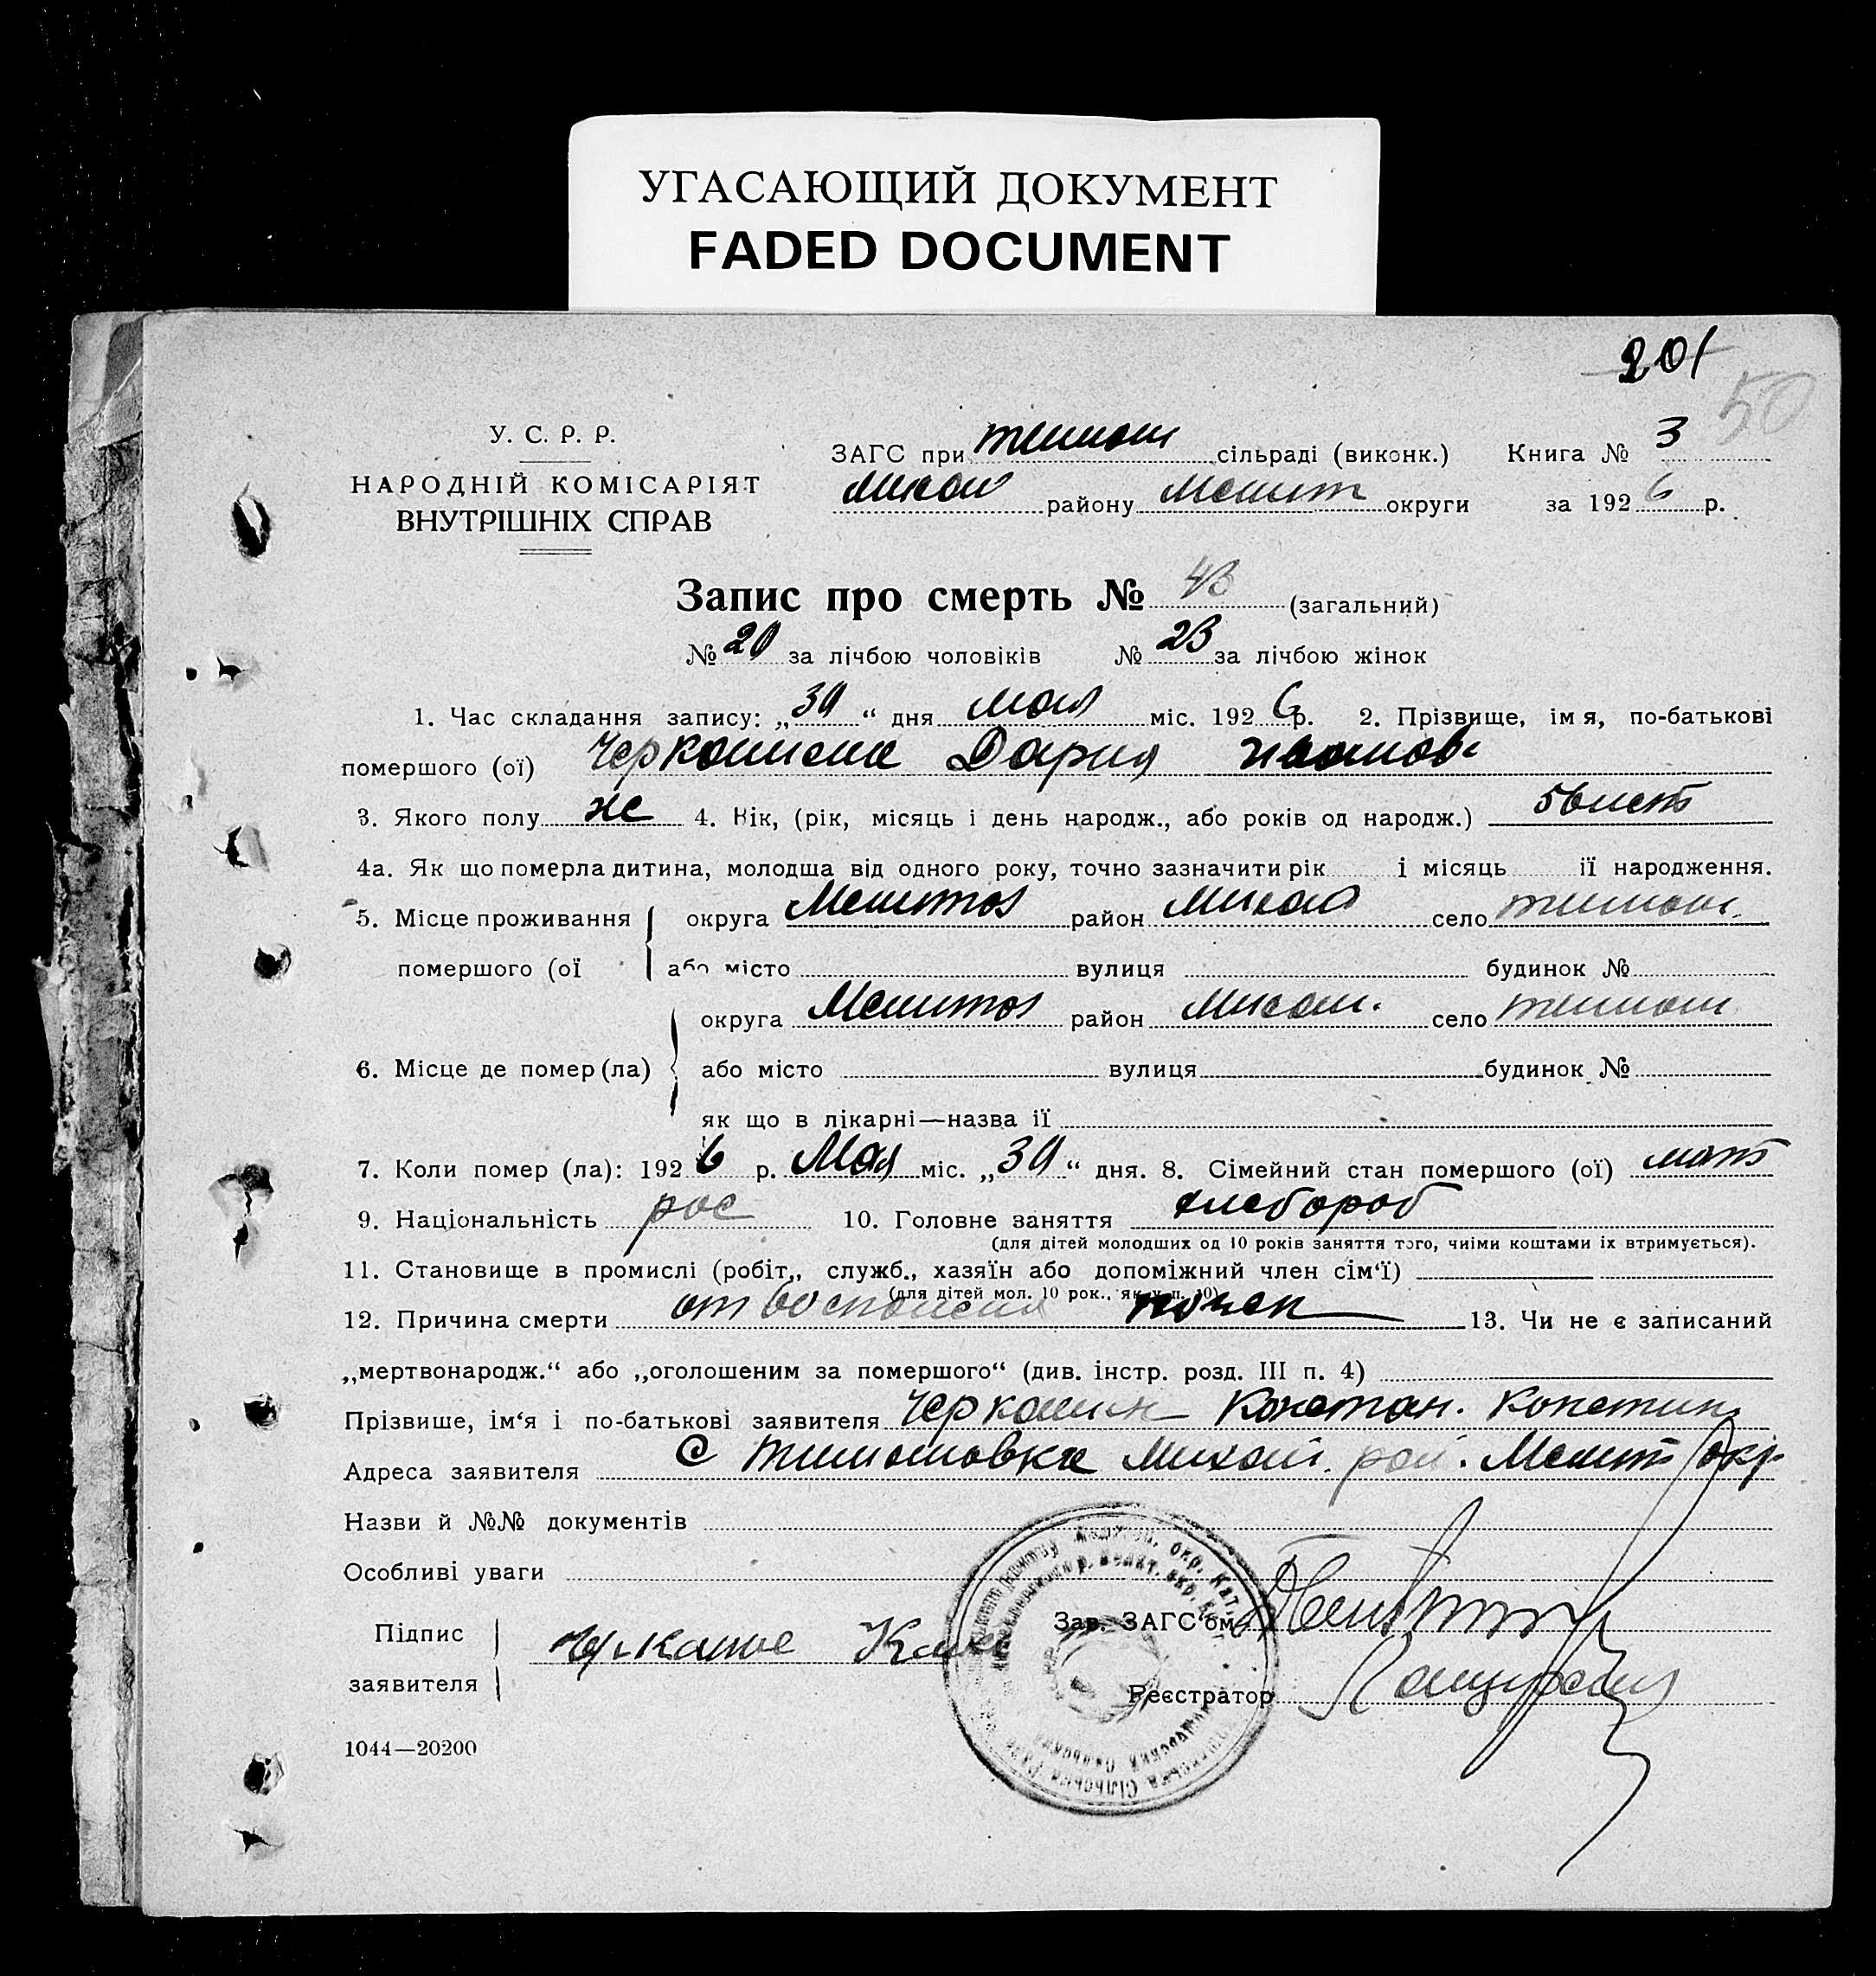 УГАСАЮЩИЙ ДОКУМЕНТ
FADED DOCUMENT
201
50
У. С. Р. Р.
НАРОДНІЙ КОМІСАРІЯТ
ВНУТРІШНІХ СПРАВ
ЗАГС при Тимош сільраді (виконк.) Книга № 3
Михай району Мелит округи за 1926 р.
Запис про смерть № 43 (загальний)
№ 20 за лічбою чоловіків № 23 за лічбою жінок
1. Час складання запису: „30“ дня Мая міс. 1926 р. 2. Прізвище, імя, по-батькові
помершого (ої) Черкашина Дария
3. Якого полу же 4. Вік, (рік, місяць і день народж., або років од народж.) 56 лет
4а. Як що померла дитина, молодша від одного року, точно зазначити рік і місяць її народження.
5. Місце проживання округа Мелитоп район Михай село Тимош.
помершого (ої або місто вулиця будинок №
округа Мелитоп район Михай. село Тимош
6. Місце де помер (ла) або місто вулиця будинок №
як що в лікарні—назва її
7. Коли помер (ла): 1926 р. Мая міс. „30“ дня. 8. Сімейний стан помершого (ої) мать
9. Національність рос 10. Головне заняття хлебороб
(для дітей молодших од 10 років заняття того, чиїми коштами їх втримується).
11. Становище в промислі (робіт., служб., хазяїн або допоміжний член сім‘ї)
(для дітей мол. 10 рок., як у п. 10)
12. Причина смерти от воспаления почек 13. Чи не є записаний
„мертвонародж.“ або „оголошеним за помершого“ (див. інстр. розд. III п. 4)
Прізвише, ім‘я і по-батькові заявителя Черкашин Констан. Констин
Адреса заявителя С Тимошовка Михай. рай. Мелит окр.
Назви й №№ документів
Особливі уваги
Підпис
заявителя
Зав. ЗАГС‘ом
Реєстратор
1044—20200